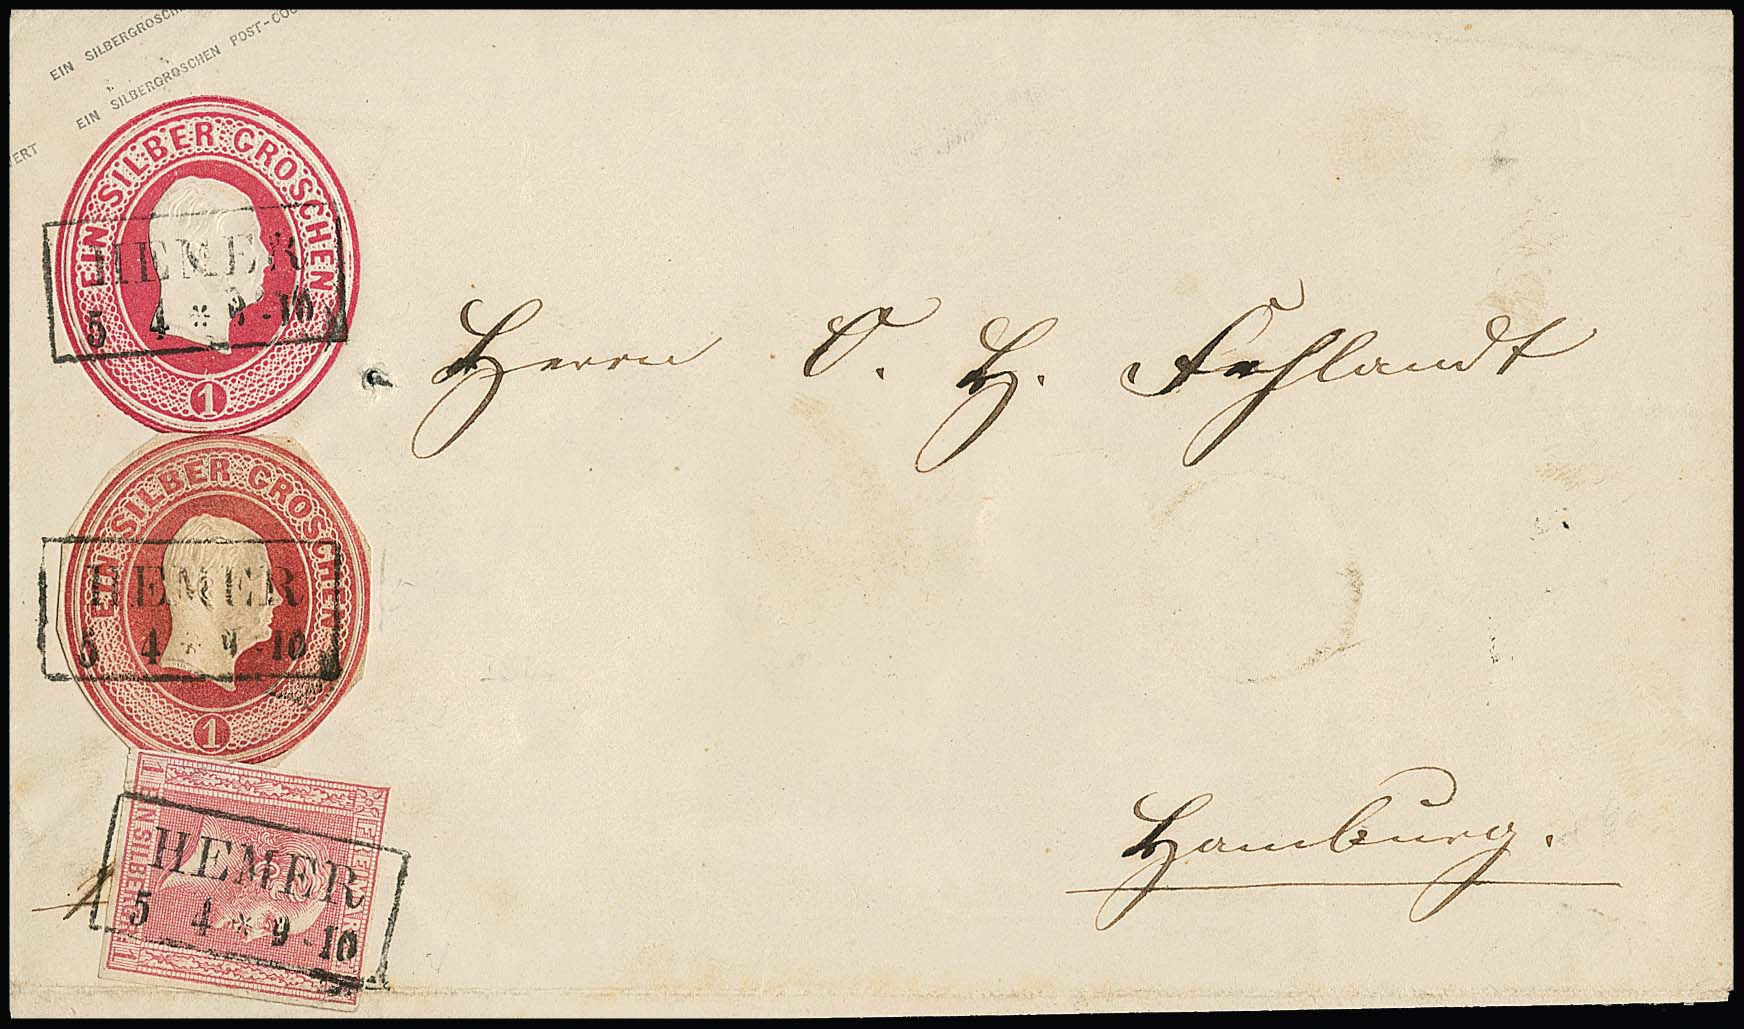 EIN SILBERGROSCH
EIN SILBERGROSCHEN POST-COU
VERT
EIN SILBER GROSCHEN
1
HEMER
5 4 * 9-10
Herrn O. H. Fehlandt
EIN SILBER GROSCHEN
1
HEMER
5 4 * 9-10
Hamburg.
1 FREIMARKE
1 EIN SILBERGR. 1
HEMER
5 4 * 9-10
1